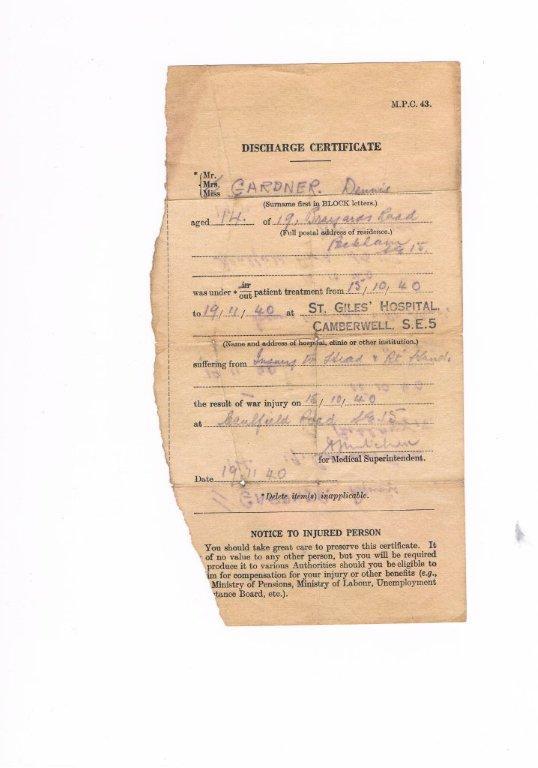 M.P.C. 43.
DISCHARGE CERTIFICATE
* Mr.
Mrs.
Miss GARDNER. Dennis
(Surname first in BLOCK letters.)
aged 14. of 19, Brayards Road
(Full postal address of residence.)
Peckham
SE 15.
was under * in/out patient treatment from 15, 10, 40
to 19, 11, 40 at ST. GILES' HOSPITAL,
CAMBERWELL, S.E.5
(Name and address of hospital, clinic or other institution.)
suffering from Injury to Head & Rt Hand.
the result of war injury on 15, 10, 40
at Road SE 15
for Medical Superintendent.
Date 19 11 40
*Delete item(s) inapplicable.
NOTICE TO INJURED PERSON
You should take great care to preserve this certificate. It
of no value to any other person, but you will be required
produce it to various Authorities should you be eligible to
im for compensation for your injury or other benefits (e.g.,
Ministry of Pensions, Ministry of Labour, Unemployment
tance Board, etc.).